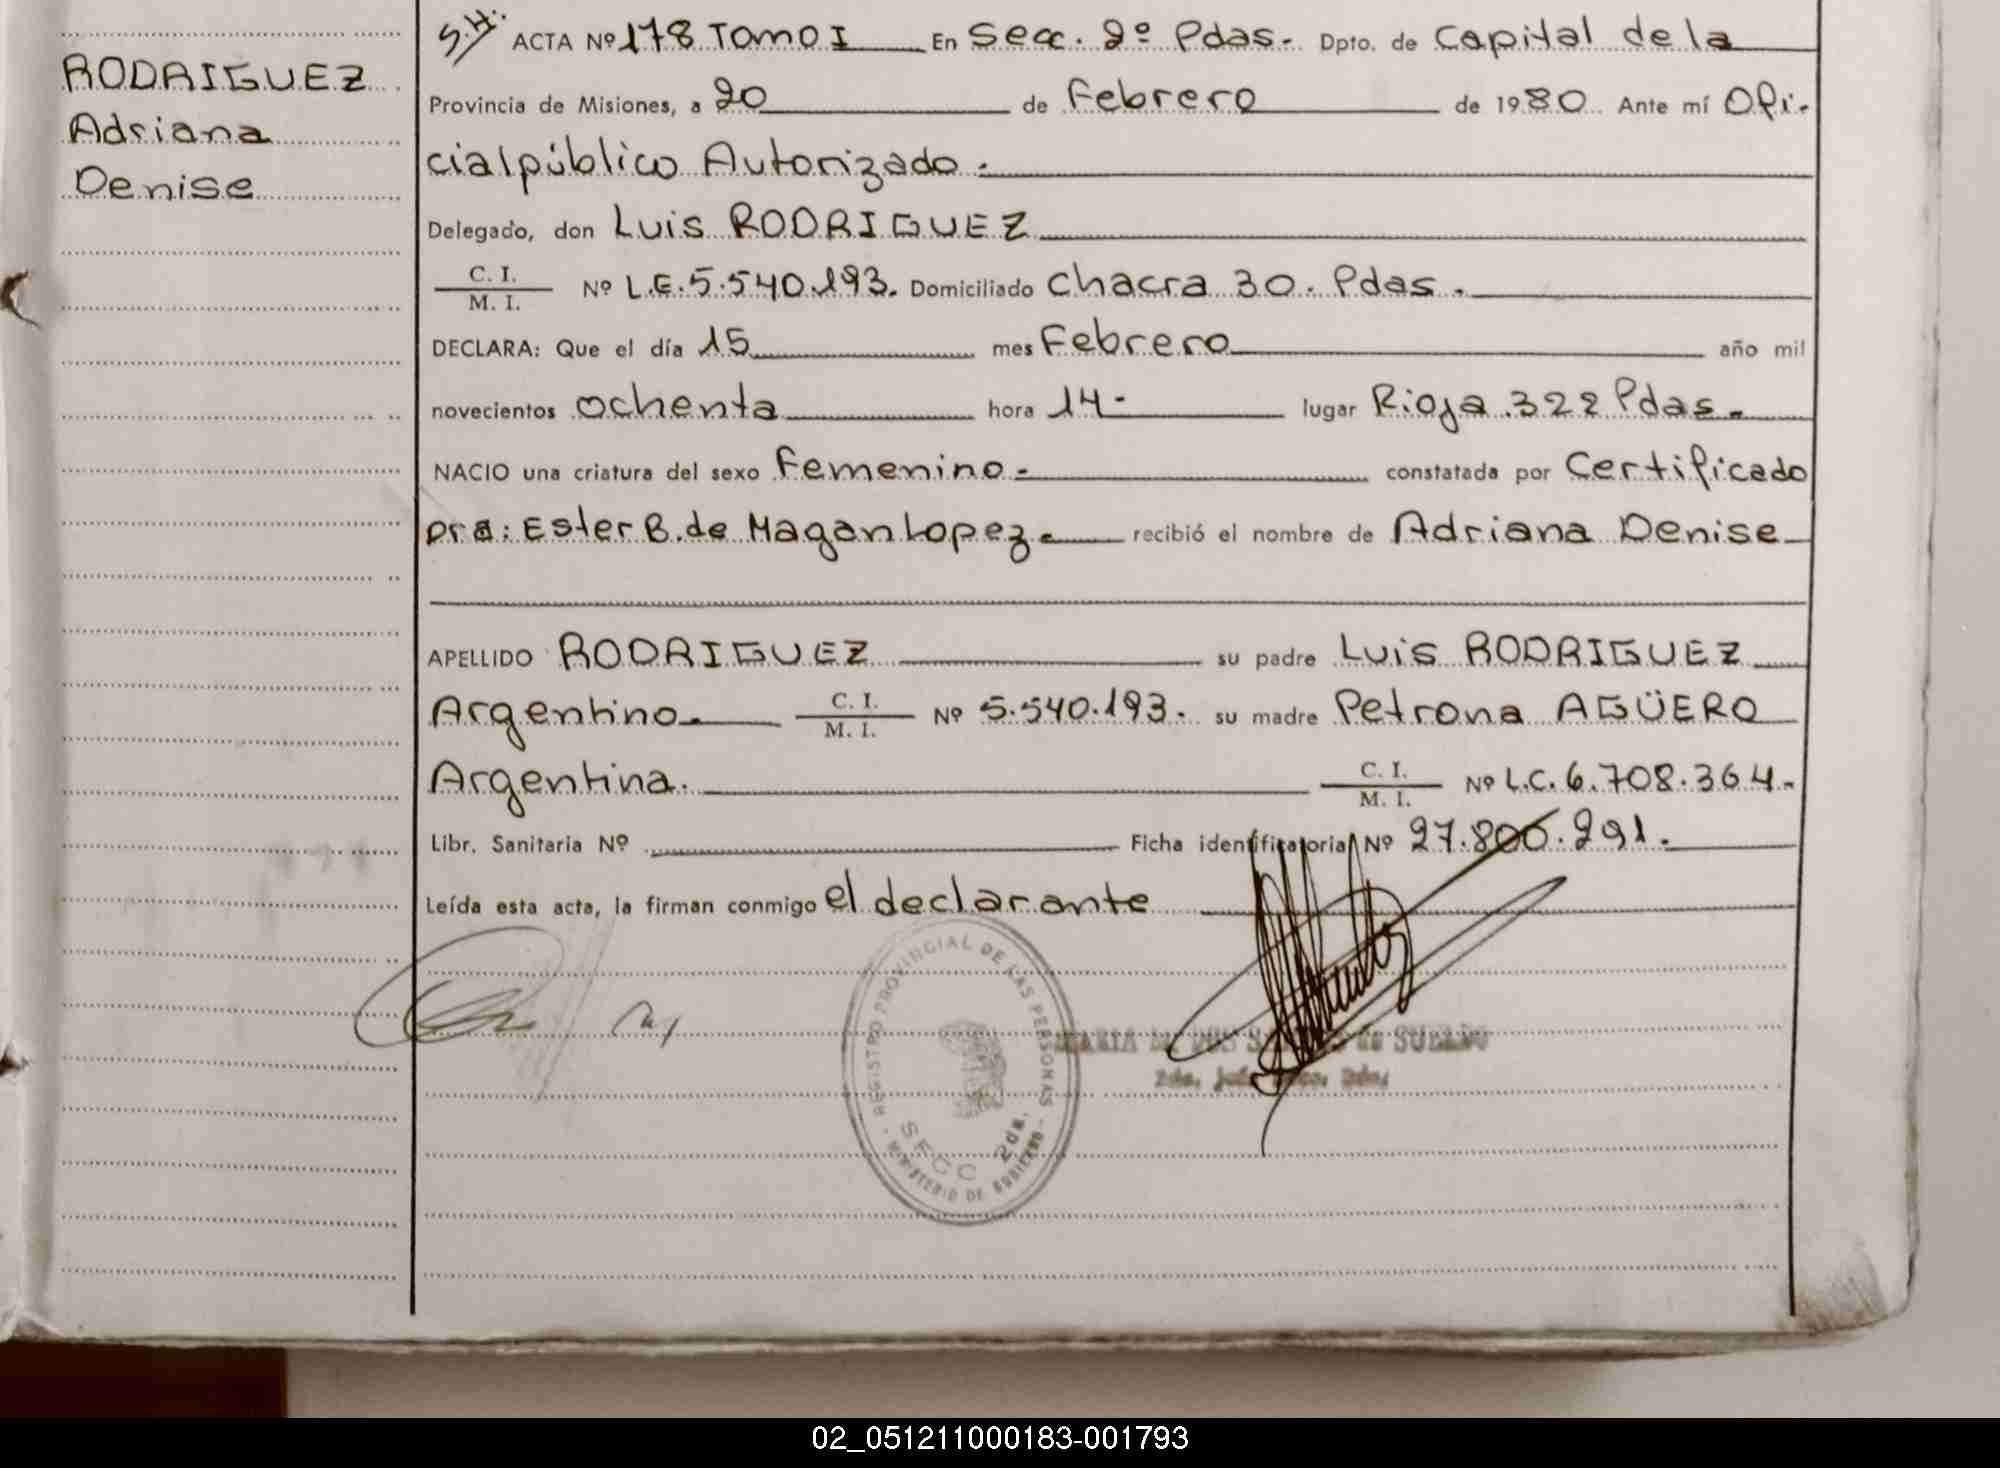 RODRIGUEZ
Adriana
Denise
S.H. ACTA Nº 178 Tomo I En Secc. 2º Pdas. Dpto. de Capital de la
Provincia de Misiones, a 20 de Febrero de 1980 Ante mí Ofi-
cial público Autorizado.
Delegado, don Luis RODRIGUEZ
C. I.
M. I.
Nº L.E. 5.540.193. Domiciliado Chacra 30. Pdas.
DECLARA: Que el día 15 mes Febrero año mil
novecientos ochenta hora 14- lugar Rioja 322 Pdas.
NACIO una criatura del sexo Femenino.- constatada por Certificado
Dra: Ester B. de Magan Lopez. recibió el nombre de Adriana Denise
APELLIDO RODRIGUEZ su padre Luis RODRIGUEZ
Argentino. C. I.
M. I.
Nº 5.540.193. su madre Petrona AGÜERO
Argentina. C. I.
M. I.
Nº L.C. 6.708.364.
Libr. Sanitaria Nº Ficha identificatoria Nº 27.800.291.
Leída esta acta, la firman conmigo el declarante
REGISTRO PROVINCIAL DE LAS PERSONAS
SECC 2da.
- MINISTERIO DE GOBIERNO -
02_051211000183-001793